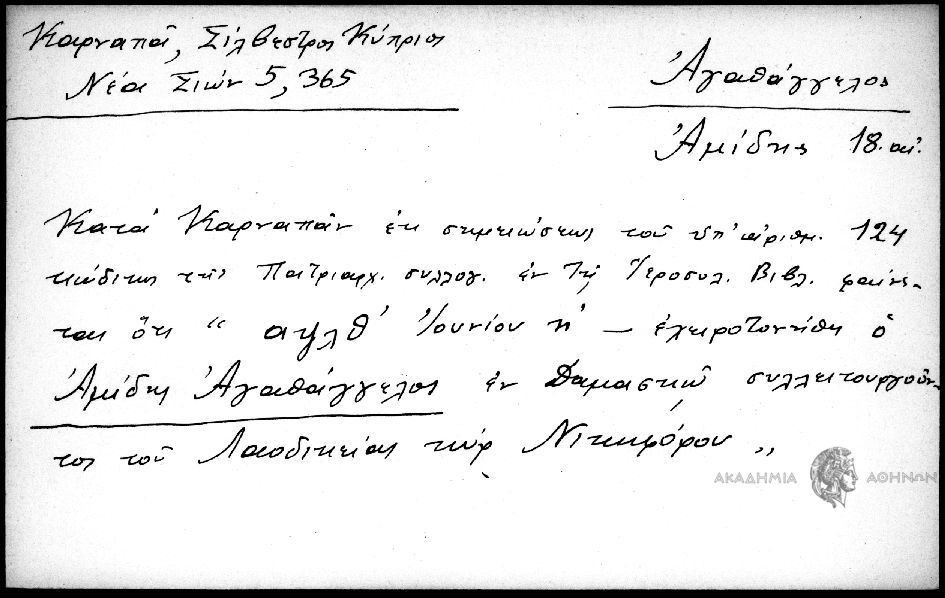 Καρναπᾶ, Σίλβεστρος Κύπριος
Νέα Σιών 5, 365
Ἀγαθάγγελος
Ἀμίδης 18. αἰ.
Κατά Καρναπᾶν ἐκ σημειώσεως τοῦ ὑπ' ἀριθμ. 124
κώδικος τῆς Πατριαρχ. συλλογ. ἐν τῇ Ἱεροσυλ. Βιβλ. φαίνε-
ται ὅτι “ αψλθ' Ἰουνίου η' – ἐχειροτονήθη ὁ
Ἀμίδης Ἀγαθάγγελος ἐν Δαμασκῷ συλλειτουργοῦν-
τος τοῦ Λαοδικείας κύρ Νικηφόρου „
ΑΚΑΔΗΜΙΑ ΑΘΗΝΩΝ